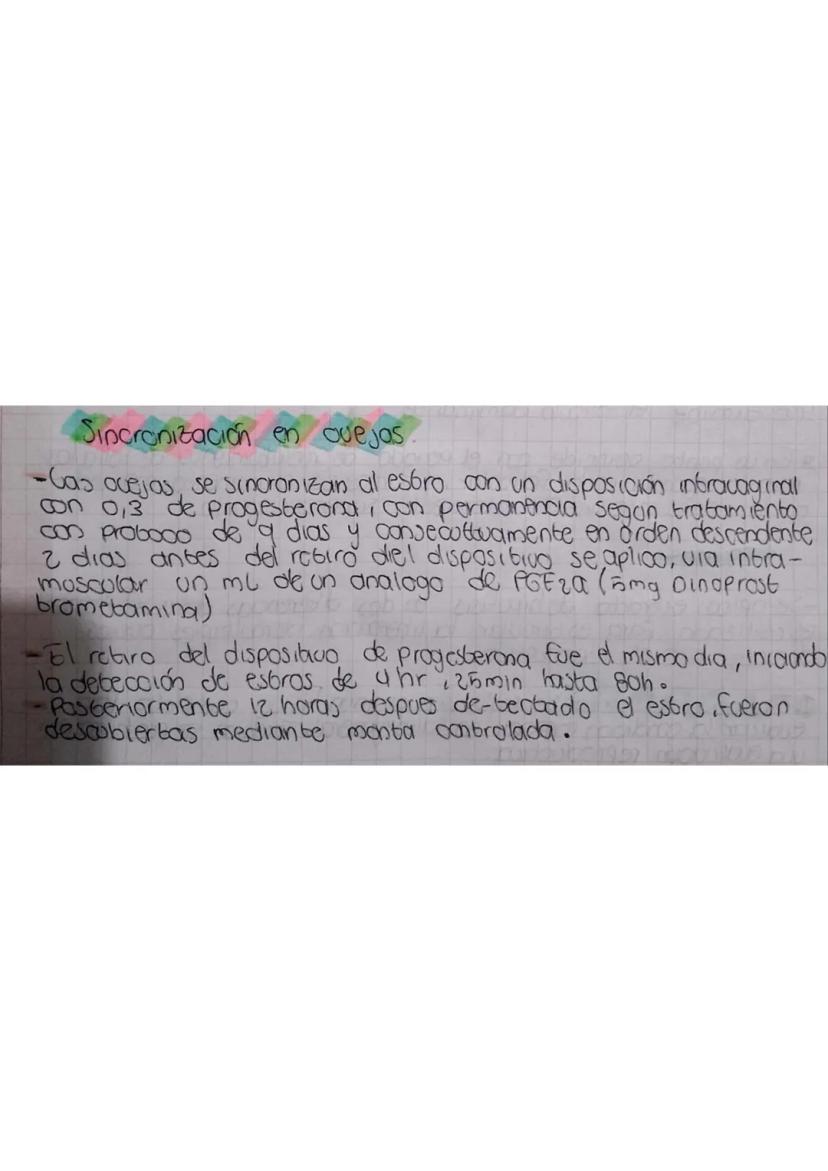 Sincronización en ovejas.
-Las ovejas se sincronizan al estro con un disposición intravaginal
con 0,3 de progesterona, con permanencia segun tratamiento
con protoco de 9 dias y consecutivamente en orden descendente
2 dias antes del retiro diel dispositivo se aplico, via intra-
muscular un mL de un analogo de PGF2a (5mg Dinoprost
trometamina)
-El retiro del dispositivo de progesterona fue el mismo dia, iniciando
la detección de estros de 4hr, 25min hasta 80h.
-Posteriormente 12 horas despues de-tectado el estro, fueron
descubiertas mediante monta controlada.